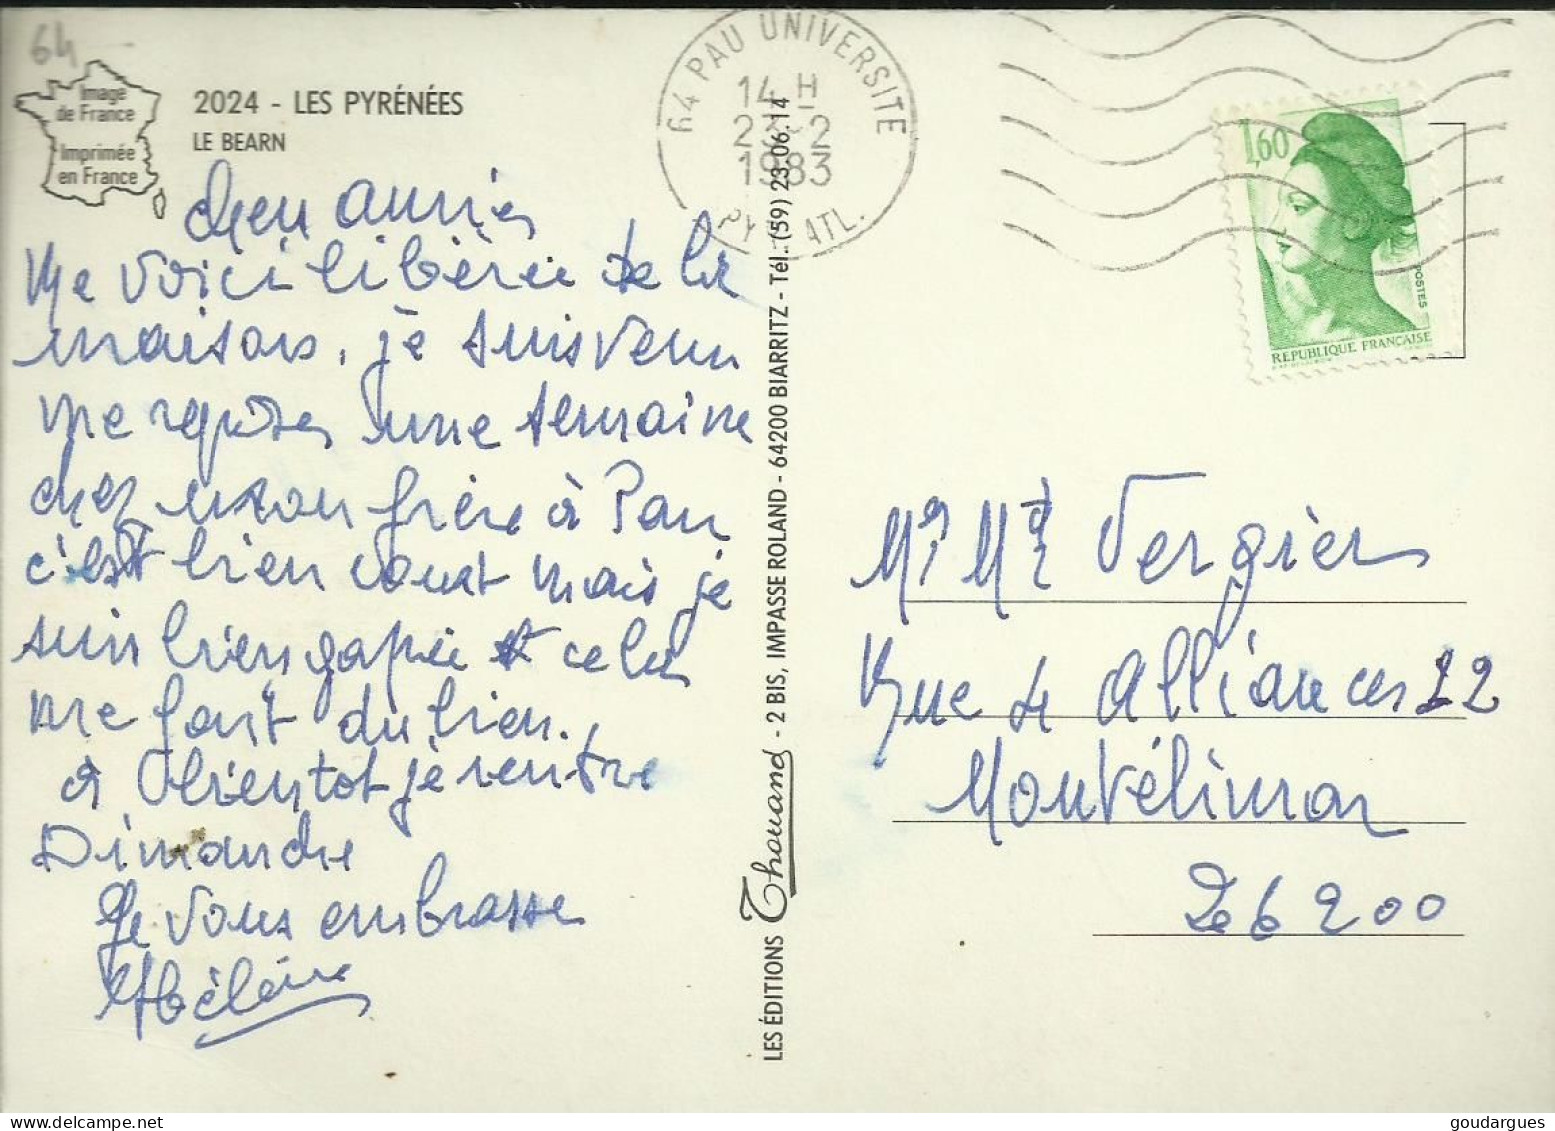 64
Image
de France
Imprimée
en France
2024 - LES PYRÉNÉES
LE BEARN
cher amies
Me voici libèrée de la
maison. je suis venu
me reposer une semaine
chez mon frère à Pau
c'est bien court mais je
suis bien gapée et cela
me fait du bien.
à bientot je rentre
Dimanche
Je vous embrasse
Hélène
LES ÉDITIONS Thouand - 2 BIS, IMPASSE ROLAND - 64200 BIARRITZ - Tél. (59) 23.06.14
64 PAU UNIVERSITE
14 H
23-2
1983
PYR. ATL.
1,60
POSTES
REPUBLIQUE FRANCAISE
Mr Md Vergier
Rue de Alliances 22
Montélimar
26200
goudargues.com